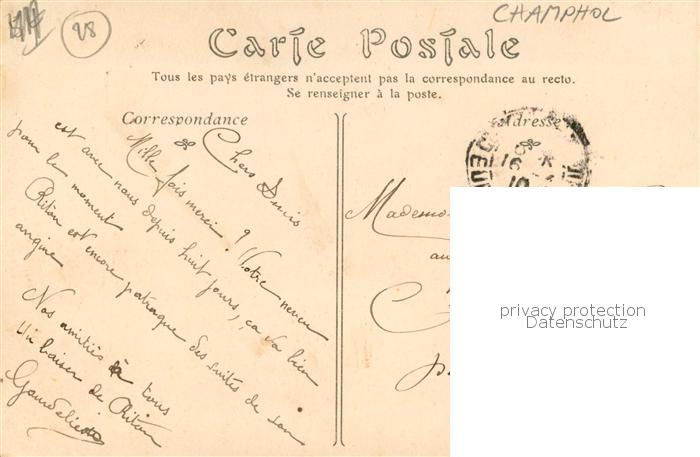 28
CHAMPHOL
Carte Postale
Tous les pays étrangers n'acceptent pas la correspondance au recto.
Se renseigner à la poste.
Correspondance
Adresse
Chers Amis
Mille fois merci ! Votre neveu
est avec nous depuis huit jours, ça va bien
pour le moment
Riton est encore patraque des suites de son
angine
Nos amitiés à tous
Un baiser de Riton
Madem
au
privacy protection
Datenschutz